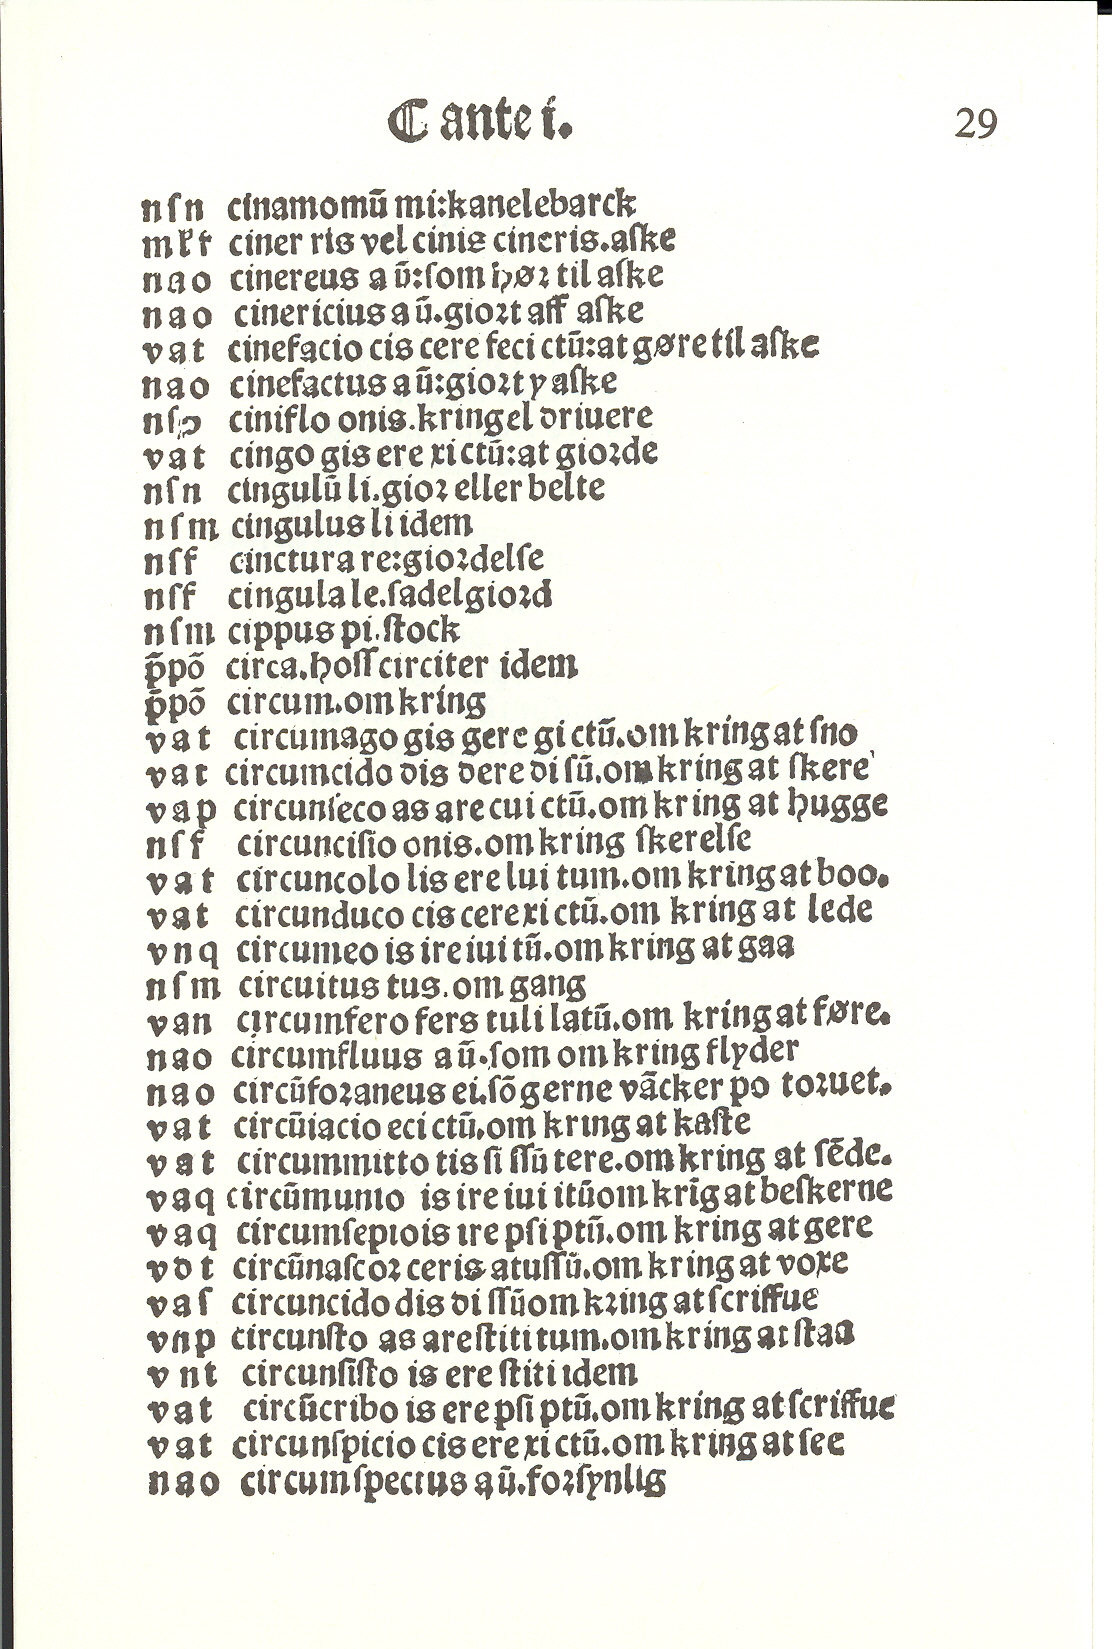 C ante i.
29
nſn cinamomū mi:kanelebarck
ciner ris vel cinis cineris.aſke
nao cinereus a ū:ſom høꝛ til aſke
nao cinericius a ū.gioꝛt aff aſke
vat cinefacio cis cere feci ctū:at gøre til aſke
nao cinefactus a ū:gioꝛt y aſke
ciniflo onis.kringel driuere
vat cingo gis ere xi ctū:at gioꝛde
nſn cingulū li.gioꝛ eller belte
nſm cingulus li idem
nſf cinctura re:gioꝛdelſe
nſf cingula le.ſadelgioꝛd
nſm cippus pi.ſtock
p̄pō circa.hoſſ circiter idem
p̄pō circum.om kring
vat circumago gis gere gi ctū.om kring at ſno
vat circumcido dis dere di ſū.om kring at ſkere
vap circunſeco as are cui ctū.om kring at hugge
nſf circunciſio onis.om kring ſkerelſe
vat circuncolo lis ere lui tum.om kring at boo.
vat circunduco cis cere xi ctū.om kring at lede
vnq circumeo is ire iui tū.om kring at gaa
nſm circuitus tus.om gang
van circumfero fers tuli latū.om kring at føre.
nao circumfluus a ū.ſom om kring flyder
nao circūfoꝛaneus ei.ſō gerne vācker po toꝛuet.
vat circūiacio eci ctū.om kring at kaſte
vat circummitto tis ſi ſſū tere.om kring at ſēde.
vaq circūmunio is ire iui itū om krīg at beſkerne
vaq circumſepio is ire pſi ptū.om kring at gere
vdt circūnaſcoꝛ ceris atuſſū.om kring at voxe
vaſ circuncido dis di ſſū om kꝛing at ſcriffue
vnp circunſto as are ſtiti tum.om kring at ſtaa
vnt circunſiſto is ere ſtiti idem
vat circūcribo is ere pſi ptū.om kring at ſcriffue
vat circunſpicio cis ere xi ctū.om kring at ſee
nao circumſpectus a ū.foꝛſynlig